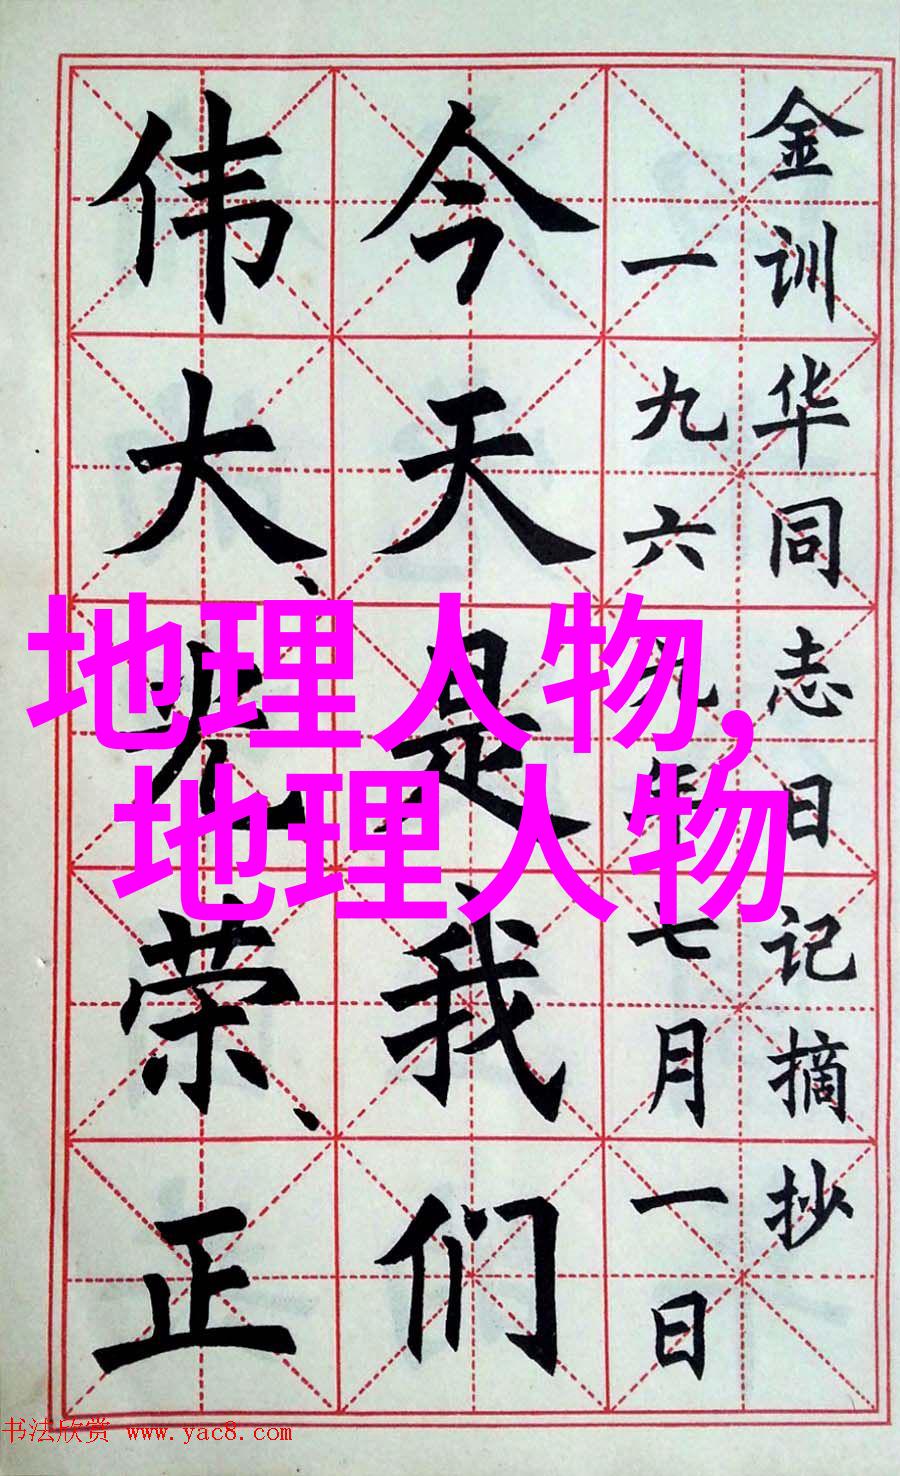 金训华同志日记摘抄
一九六九年七月一日
今天是我们
伟大、光荣、正
地理人物,
地理人物
书法欣赏 www.yac8.com